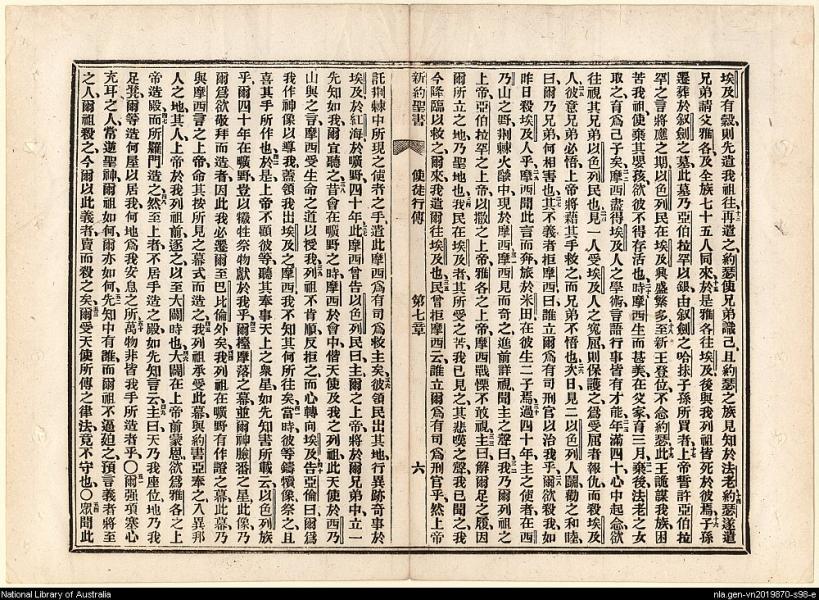 埃及有穀則先遣我祖往再遣之約瑟使兄弟識己且約瑟之族見知於法老約瑟遂遣
兄弟請父雅各及全族七十五人同來於是雅各往埃及後與我列祖皆死於彼焉子孫
遷葬於敘劍之墓此墓乃亞伯拉罕以銀由敘劍之哈抹子孫所買者上帝誓許亞伯拉
罕之言將應之期以色列民在埃及興盛繁多至新王登位不念約瑟此王詭謀我族困
苦我祖使棄其嬰孩欲不得存活也時摩西生而甚美在父家育三月棄後法老之女
取之育為己子矣摩西盡得埃及人之學術言語行事皆有才能年滿四十心中起念欲
往視其兄弟以色列民也見一人受埃及人之冤屈則保護之為受屈者報仇而殺埃及
人彼意兄弟必悟上帝將藉其手救之而兄弟不悟也次日見二以色列人鬬勸之和睦
曰爾乃兄弟何相害也其不義者拒摩西曰誰立爾為有司刑官以治我乎爾欲殺我如
昨日殺埃及人乎摩西聞此言而奔旅於米田在彼生二子焉過四十年主之使者在西
乃山之野荊棘火燄中現於摩西摩西見而奇之進前詳視聞主之聲曰我乃爾列祖之
上帝亞伯拉罕之上帝以撒之上帝雅各之上帝摩西戰慄不敢視主曰解爾足之履因
爾所立之地乃聖地也我民在埃及者其所受之苦我已見之其悲嘆之聲我已聞之我
今降臨以救之爾來我遣爾往埃及也民曾拒摩西云誰立爾為有司為刑官乎然上帝
新約聖書 使徒行傳 第七章 六
託荊棘中所現之使者之手遣此摩西為有司為救主矣彼領民出其地行異跡奇事於
埃及於紅海於曠野四十年此摩西曾告以色列民曰主爾之上帝將於爾兄弟中立一
先知如我爾宜聽之昔會在曠野之時摩西於會中偕天使及我之列祖此天使於西乃
山與之言摩西受生命之道以授我列祖不肯順反拒之而心轉向埃及告亞倫曰爾為
我作神像以導我蓋領我出埃及之摩西我不知其何所往矣當時彼等鑄犢像祭之且
喜其手所作也於是上帝不顧彼等聽其奉事天上之衆星如先知書所載云以色列族
乎爾四十年在曠野豈以犧牲祭物獻於我乎爾檯摩落之幕並爾神臉番之星此像乃
爾為欲敬拜而造者因此我必遷爾至巴比倫外矣我列祖在曠野有作證之幕此幕乃
與摩西言之上帝命其按所見之幕式而造之我列祖承受此幕與約書亞奉之入異邦
人之地其人上帝於我列祖前逐之以至大闢時也大闢在上帝前蒙恩欲為雅各之上
帝造殿而所羅門造之然至上者不居手造之殿如先知言云主曰天乃我座位地乃我
足凳爾等造何屋以居我何地為我安息之所萬物非皆我手所造者乎〇爾強項塞心
充耳之人常違聖神爾祖如何爾亦如何先知中有誰而爾祖不逼迫之預言義者將至
之人爾祖殺之今爾以此義者賣而殺之矣爾受天使所傳之律法竟不守也〇眾聞此
National Library of Australia
nla.gen-vn2019870-s98-e